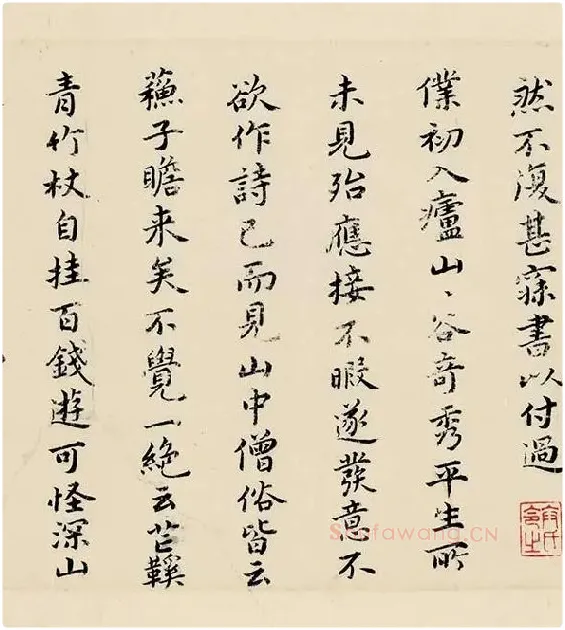 然不復甚寐書以付過
僕初入廬山〻谷奇秀平生所
未見殆應接不暇遂發意不
欲作詩已而見山中僧俗皆云
蘓子瞻来矣不覺一絶云芒鞵
青竹杖自挂百錢遊可怪深山
Shufawang.CN